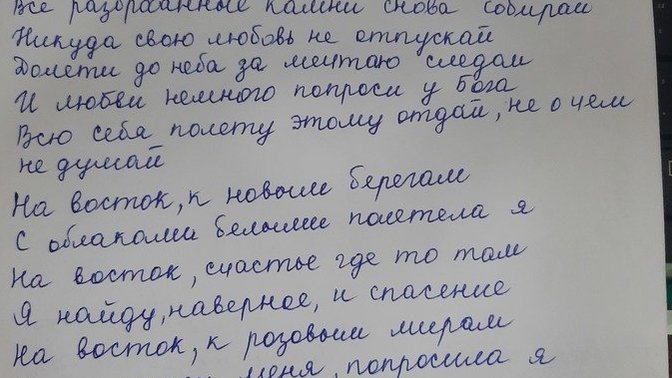 Все разорванные камни снова собирай
Никуда свою любовь не отпускай
Долети до неба за мечтаю следом
И любви немного попроси у Бога
Всю себя полету этому отдай, не о чем
не думай
На восток, к новым берегам
С облаками белыми полетела я
На восток, счастье где то там
Я найду, наверное, и спасение
На восток, к розовым мирам
меня, попросила я